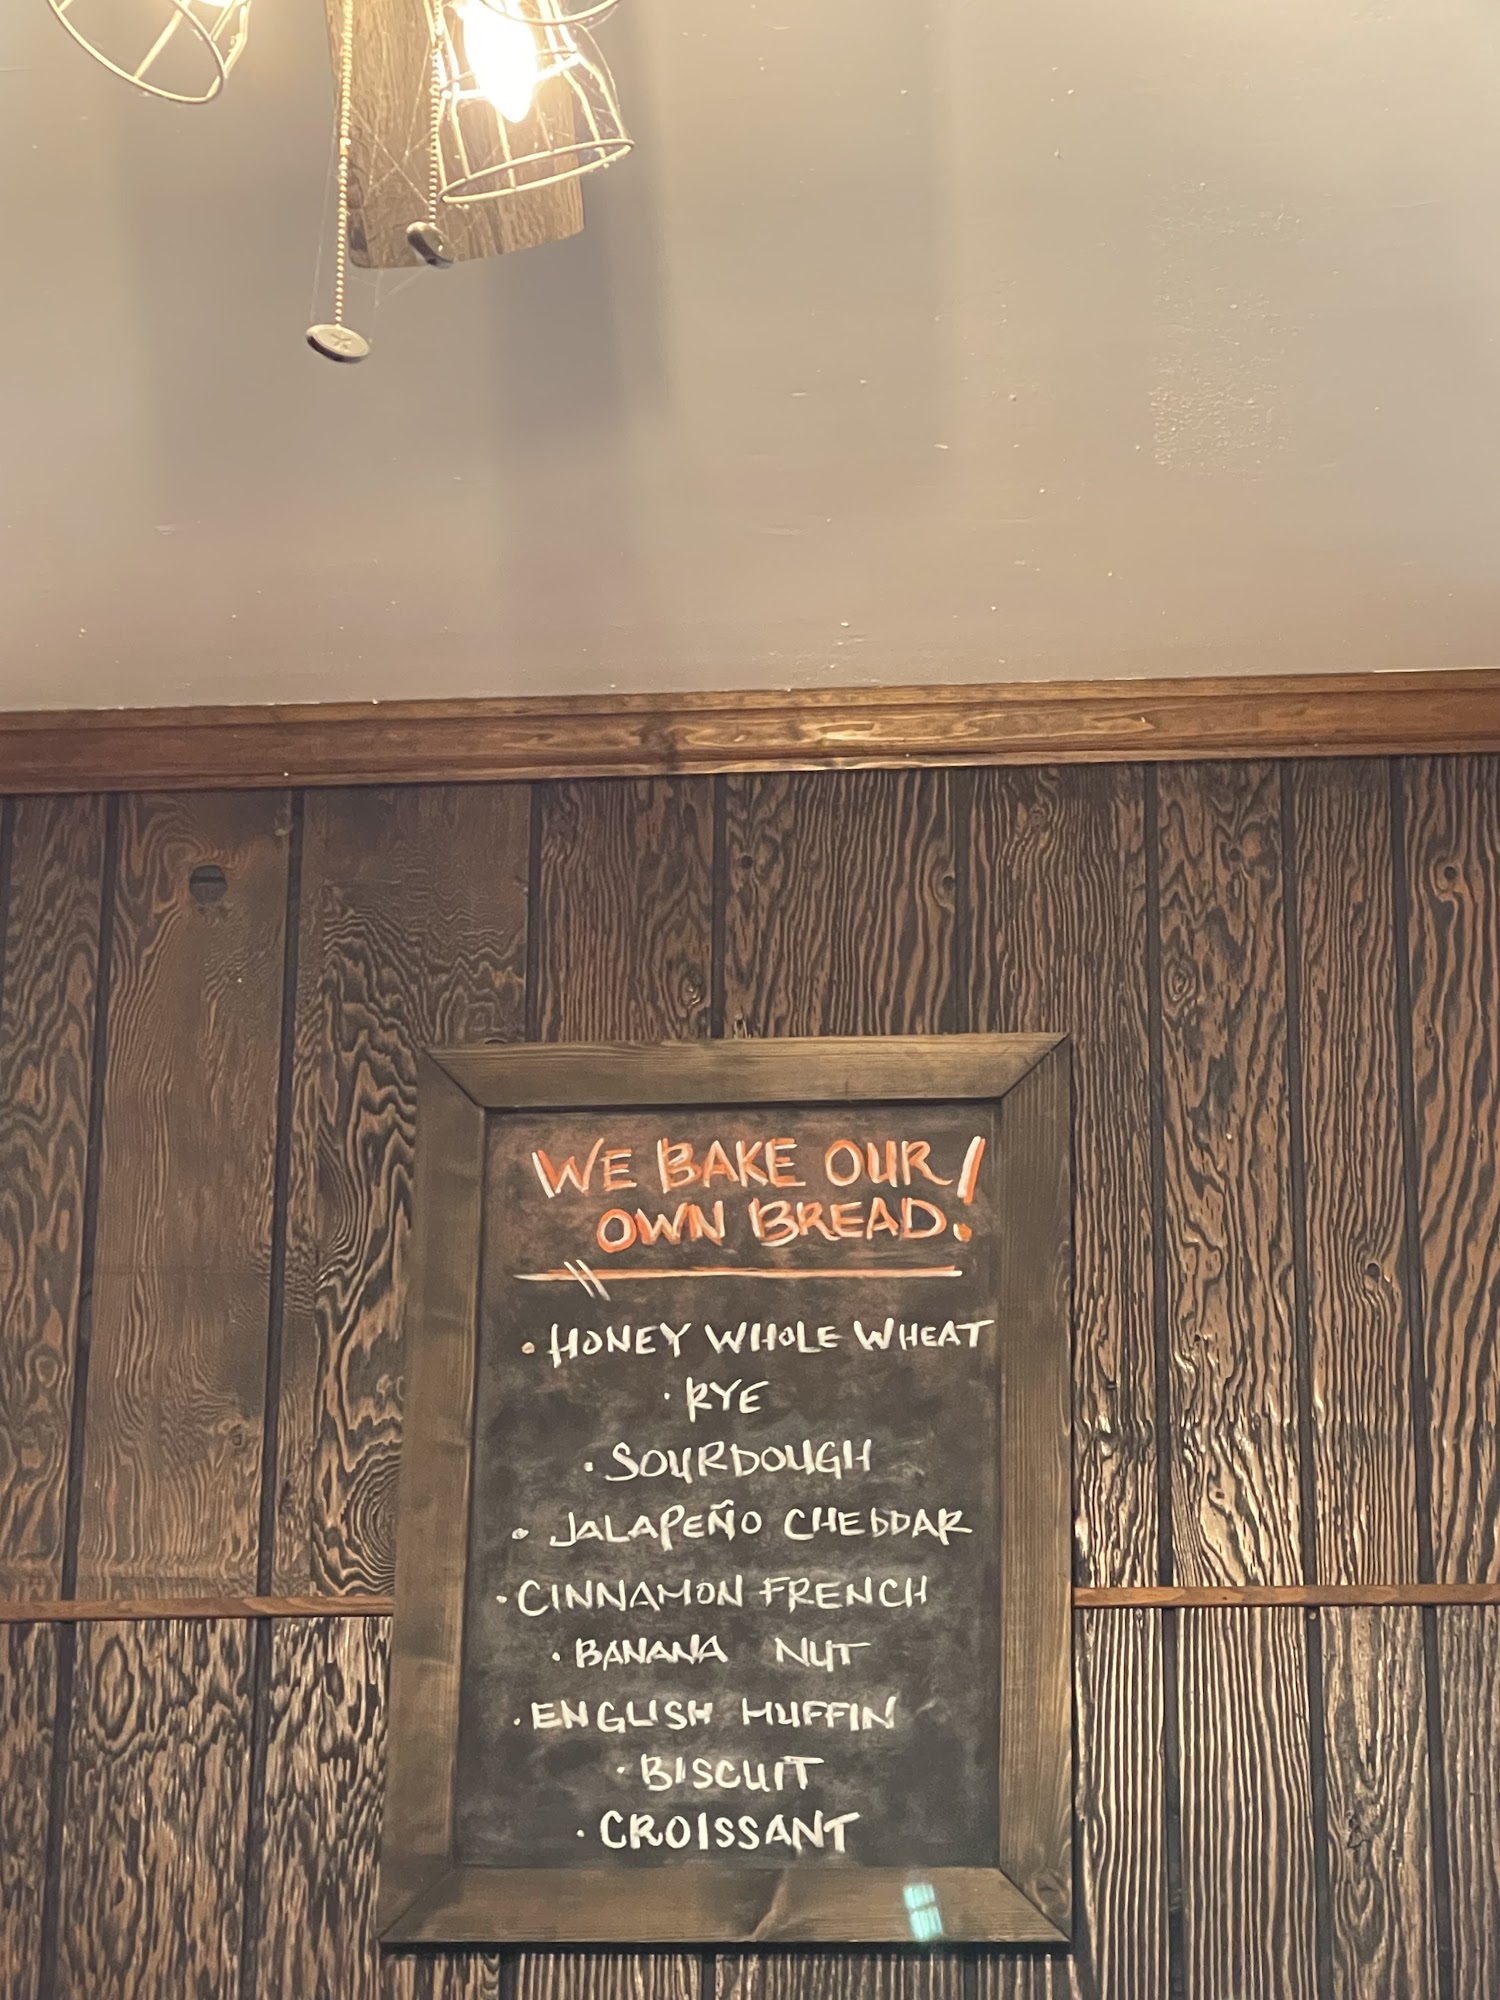 WE BAKE OUR
OWN BREAD!
• HONEY WHOLE WHEAT
• RYE
• SOURDOUGH
• JALAPEÑO CHEDDAR
• CINNAMON FRENCH
• BANANA NUT
• ENGLISH MUFFIN
• BISCUIT
• CROISSANT